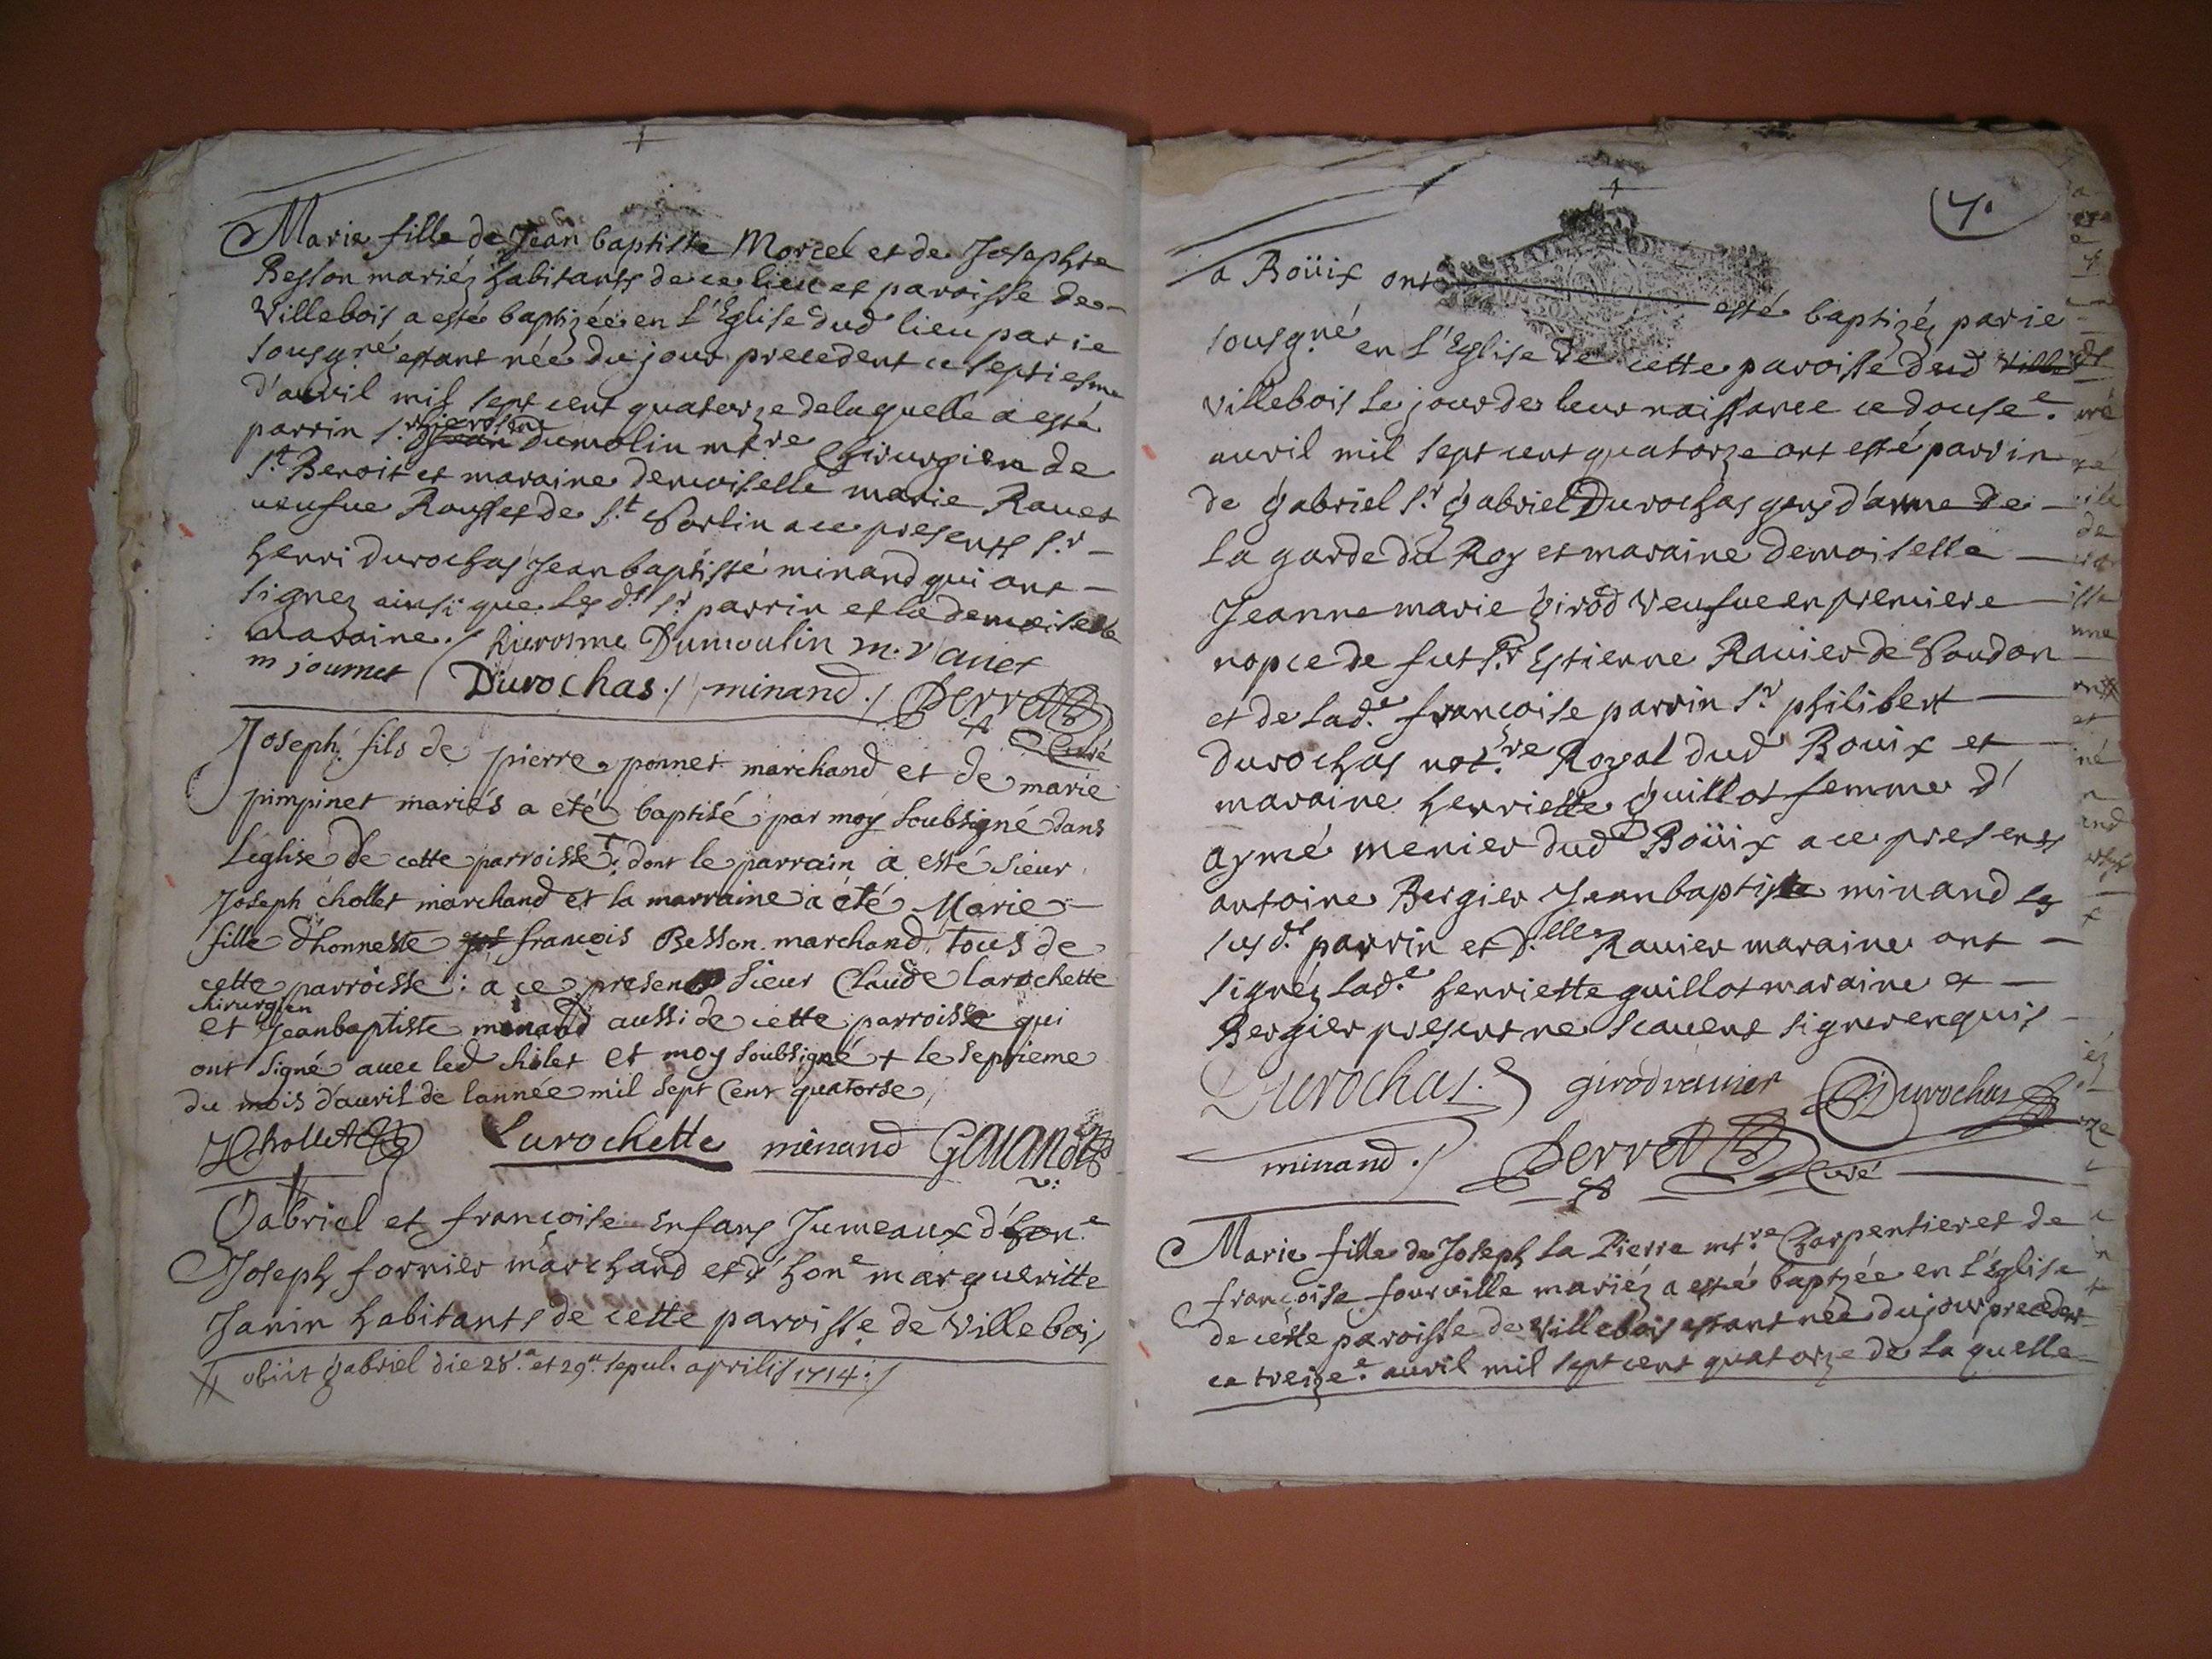 Marie fille de Jean baptiste Morcel et de Josephte
Besson mariéz habitants de ce lieu et paroisse de
Villebois a esté baptizée en L'Eglise dud lieu par ie
sousgné estant née du jour precedent ce septiesme
d'avril mil sept cent quatorze de laquelle a esté
parrin Sr hierosme Jean Dumolin mtre Chirurgien de
St Benoit et maraine demoiselle marie Rauet
ueufue Rousset de St Sorlin a ce presents Sr
henri durochas Jean baptiste minand qui ont
signez ainsi que Les dt Sr parrin et la demoiselle
maraine. / hierosme Dumoulin m. rauet
m journet / Durochas. / minand. / Perret
Curé
Joseph fils de pierre ponnet marchand et de marie
pimpinet mariés a eté baptisé par moy soubsigné dans
Leglise de cette parroisse: dont le parrain a esté sieur
Joseph chollet marchand et la marraine a été Marie
fille d'honneste jos françois Besson marchand tous de
cette parroisse: a ce present sieur Claude larochette
chirurgien
et Jeanbaptiste minand aussi de cette parroisse qui
ont signé avec led cholet et moy soubsigné + le septieme
du mois d'avril de lannée mil sept cent quatorse
J Chollet Larochette minand
Gabriel et françoise Enfans Jumeaux d'hone
Joseph fornier marchand et d'hone margueritte
Janin habitants de cette paroisse de Villebois
obiit Gabriel die 28.a et 29.a sepul. aprilis 1714. /
7.
a Boüix ont esté baptizéz par ie
sousgné en L'Eglise de cette paroisse dud Ville
Villebois Le jour de leur naissance ce dousee.
auril mil sept cent quatorze ont esté parrin
de Gabriel Sr Gabriel Durochas gens d'arme de
La garde du Roy et maraine demoiselle
Jeanne marie Girod veufue en premiere
nopce de fut Sr Estienne Rauier de Soudon
et de Lade françoise parrin Sr philibert
Durochas notre Royal dud Bouix et
maraine henriette Guillot femme d'
aymé menier dud Boüix a ce presents
antoine Bergier Jean baptiste minand Les
susdt parrin et D.elle Rauier maraine ont
signéz Lade henriette guillot maraine et
Bergier present ne scauent signer enquis
Durochas. girodrauier Durochas
minand. / Perret Curé
Marie fille de Joseph La Pierre mtre Charpentier et de
françoise fourville mariéz a esté baptzée en L'Eglise
de cette paroisse de Villebois estant née du jour precedent
ce treize.e auril mil sept cent quatorze de La quelle